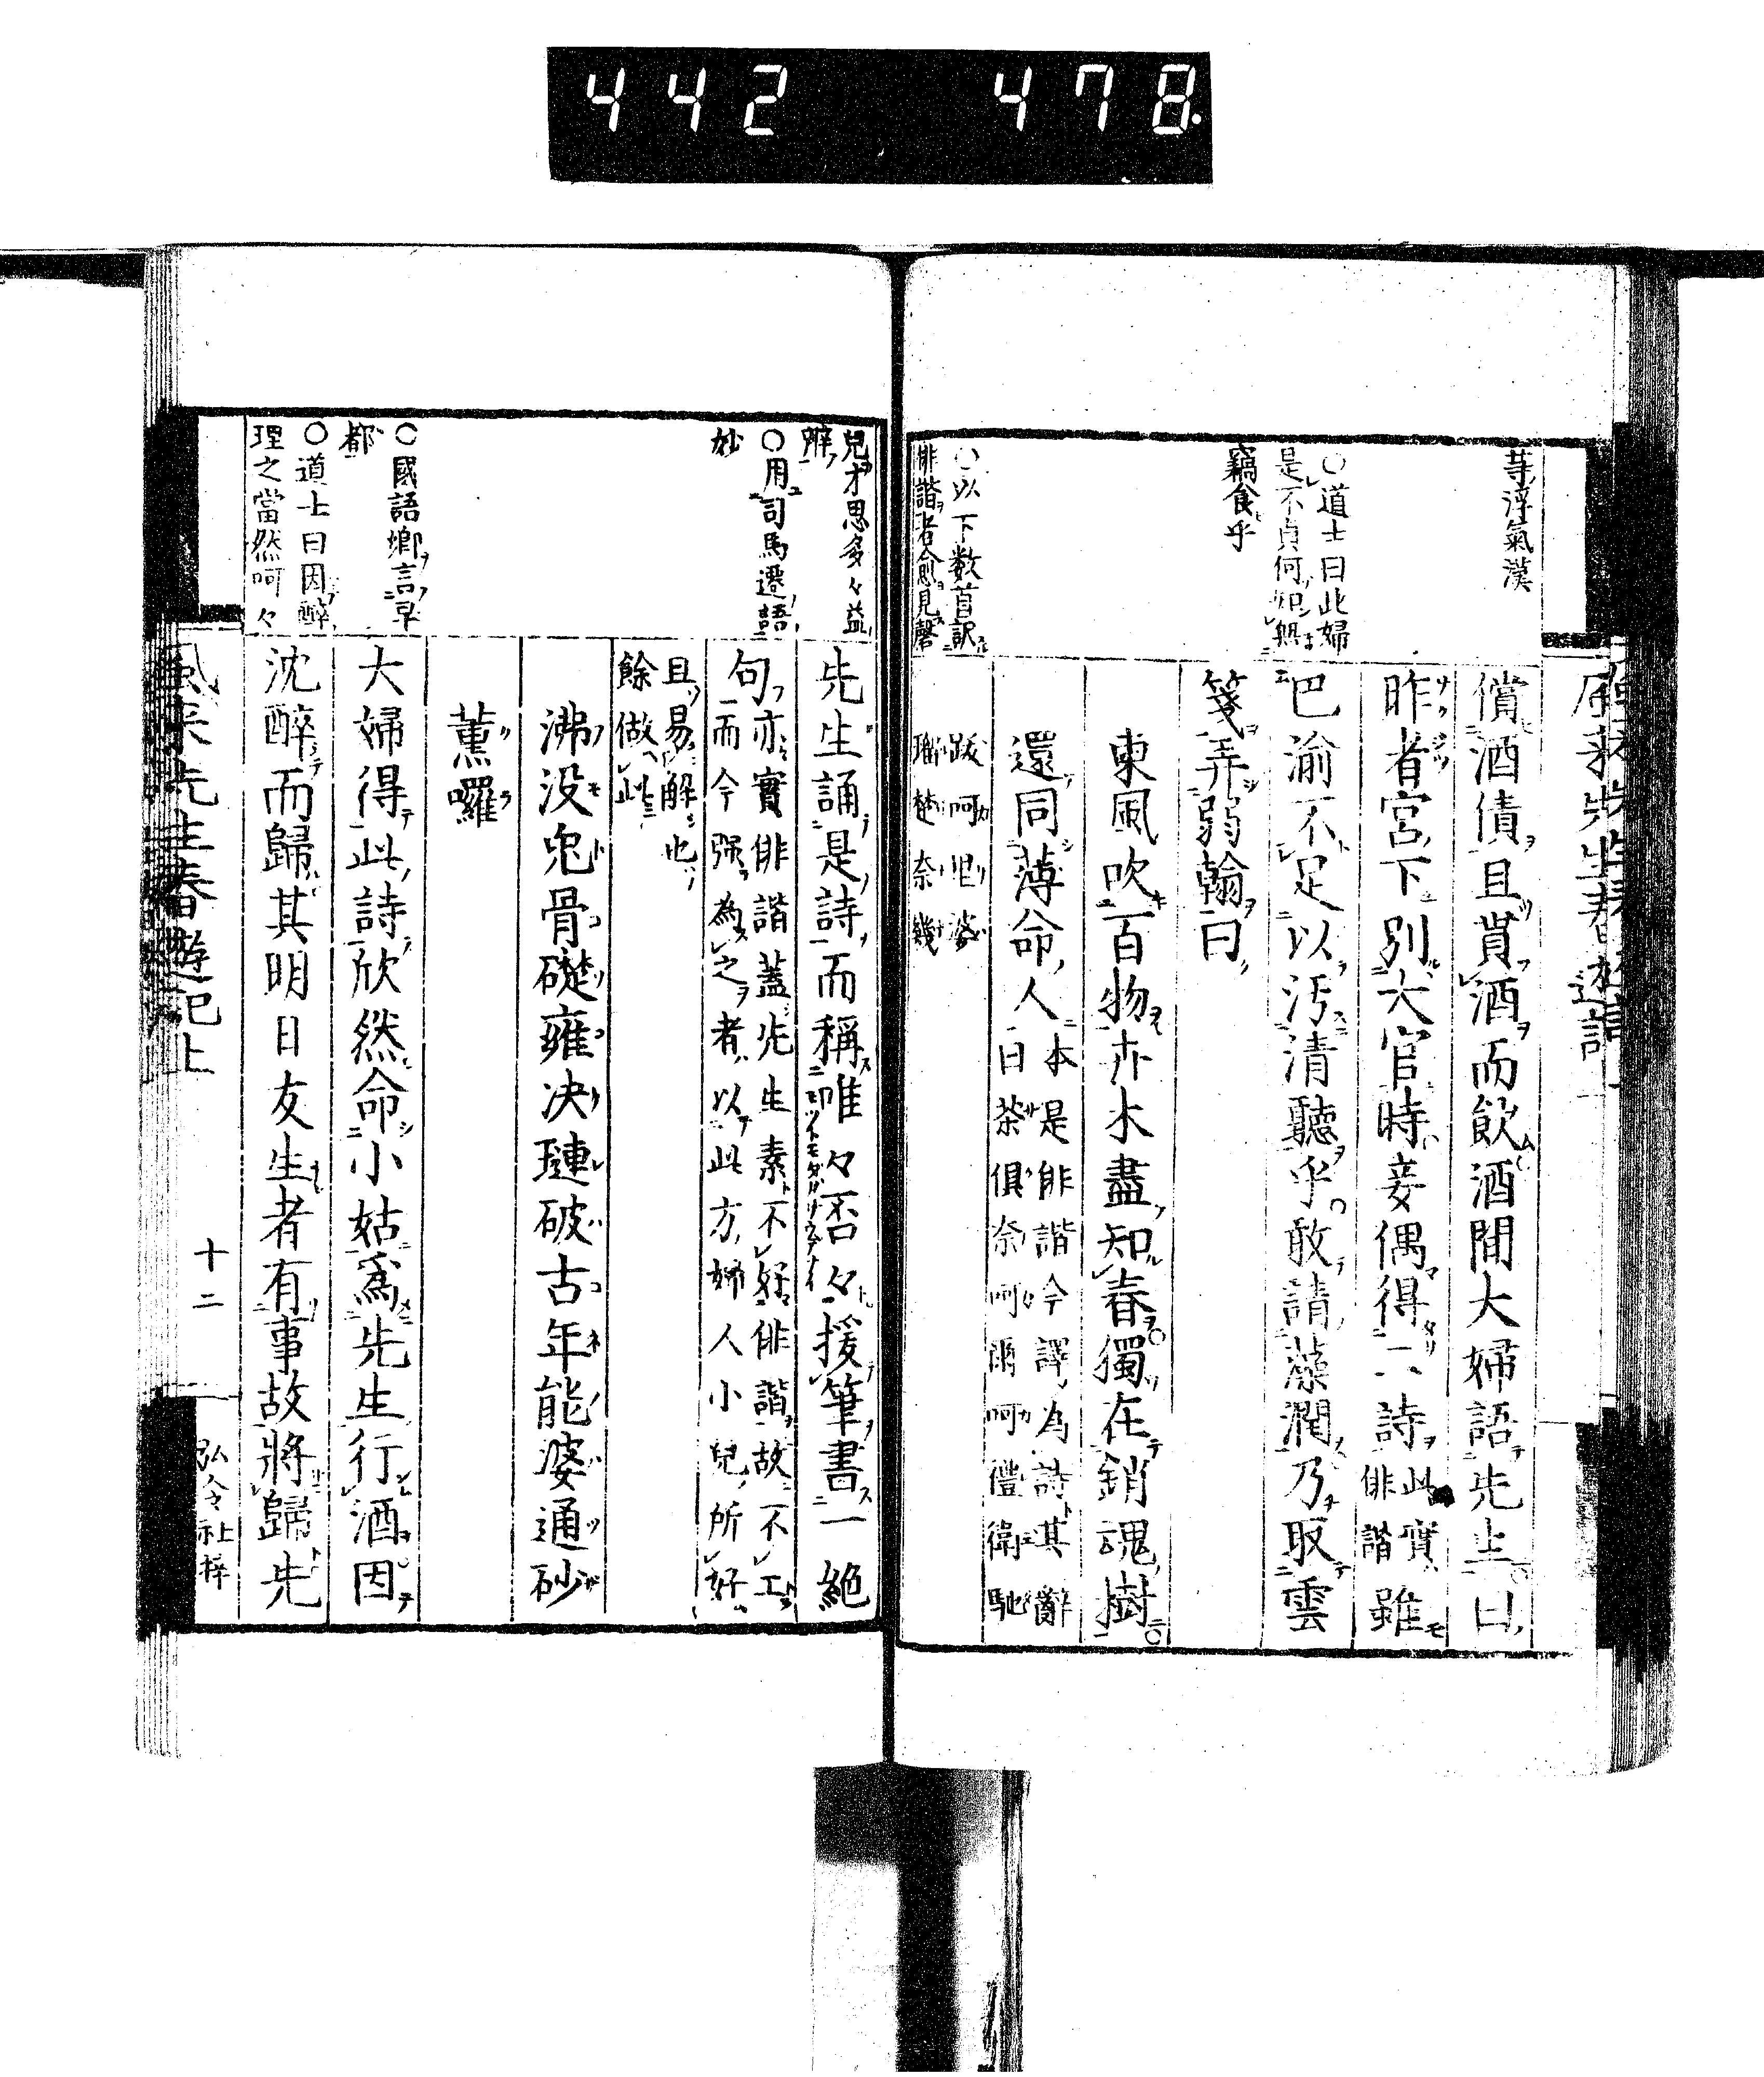 442 478.
等浮氣漢
○道士曰此婦
是不貞何如無
竊食乎
○以下数首訳
俳諧者愈見馨
償酒債且貰酒而飲酒間大婦語先生曰
昨者宮下別大官時妾偶得二詩此實俳諧雖
巴渝不足以汚清聽乎敢請藻潤乃取雲
箋弄弱翰曰
東風吹百物卉木盡知春獨在銷魂樹
還同薄命人本是俳諧今譯為詩其辭
曰茶俱奈呵爾呵禮衛馳
跋呵里婆
瑙楚奈幾
兒才思多々益
辨
○用司馬遷語
妙
○國語鄉言早
都
○道士曰因醉
理之當然呵々
先生誦是詩而稱唯々否々援筆書一絶
句亦實俳諧蓋先生素不好俳諧故不工
而今强為之者以此方婦人小兒所好
且易解也
餘做此
沸没兜骨礎雍决璉破古年能婆通砂
薰囉
大婦得此詩欣然命小姑爲先生行酒因
沈醉而歸其明日友生者有事故將歸先
風来先生春遊記上
十二
弘令社梓